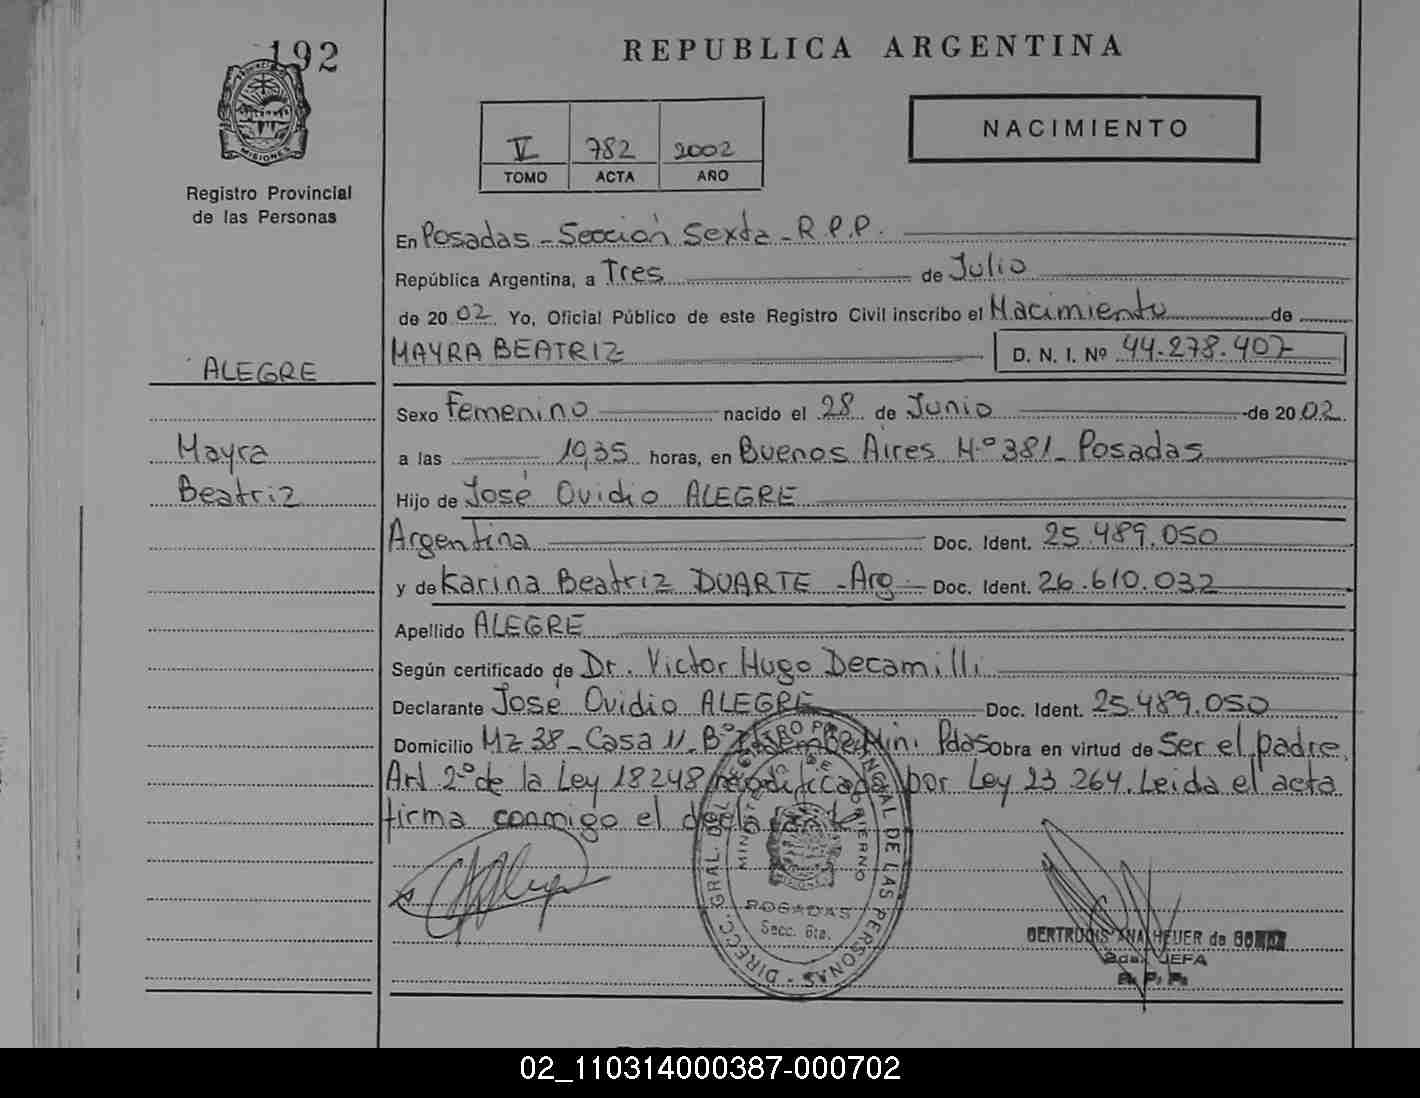 192
REPUBLICA ARGENTINA
NACIMIENTO
V 782 2002
TOMO ACTA AÑO
MISIONES
Registro Provincial
de las Personas
En Posadas - Sección Sexta - R.P.P.
República Argentina, a Tres de Julio
de 2002 Yo, Oficial Público de este Registro Civil inscribo el Nacimiento de
MAYRA BEATRIZ D. N. I. Nº 44.278.407
ALEGRE
Mayra
Beatriz
Sexo Femenino nacido el 28 de Junio de 2002
a las 10,35 horas, en Buenos Aires Nº 381 - Posadas
Hijo de José Ovidio ALEGRE
Argentina Doc. Ident. 25.489.050
y de Karina Beatriz DUARTE - Arg. Doc. Ident. 26.610.032
Apellido ALEGRE
Según certificado de Dr. Victor Hugo Decamilli
Declarante José Ovidio ALEGRE Doc. Ident. 25.489.050
Domicilio Mz 38 - Casa 11 - Bº Mini Pdas Obra en virtud de Ser el padre.
Art 2º de la Ley 18248 modificada por Ley 23 264. Leida el acta
firma conmigo el declarante
DIRECC. GRAL. DEL REGISTRO PROVINCIAL DE LAS PERSONAS
MINISTERIO DE GOBIERNO
MISIONES
POSADAS
Secc. 6ta.
GERTRUDIS ANA HEUER de
2da. JEFA
R. P. P.
02_110314000387-000702